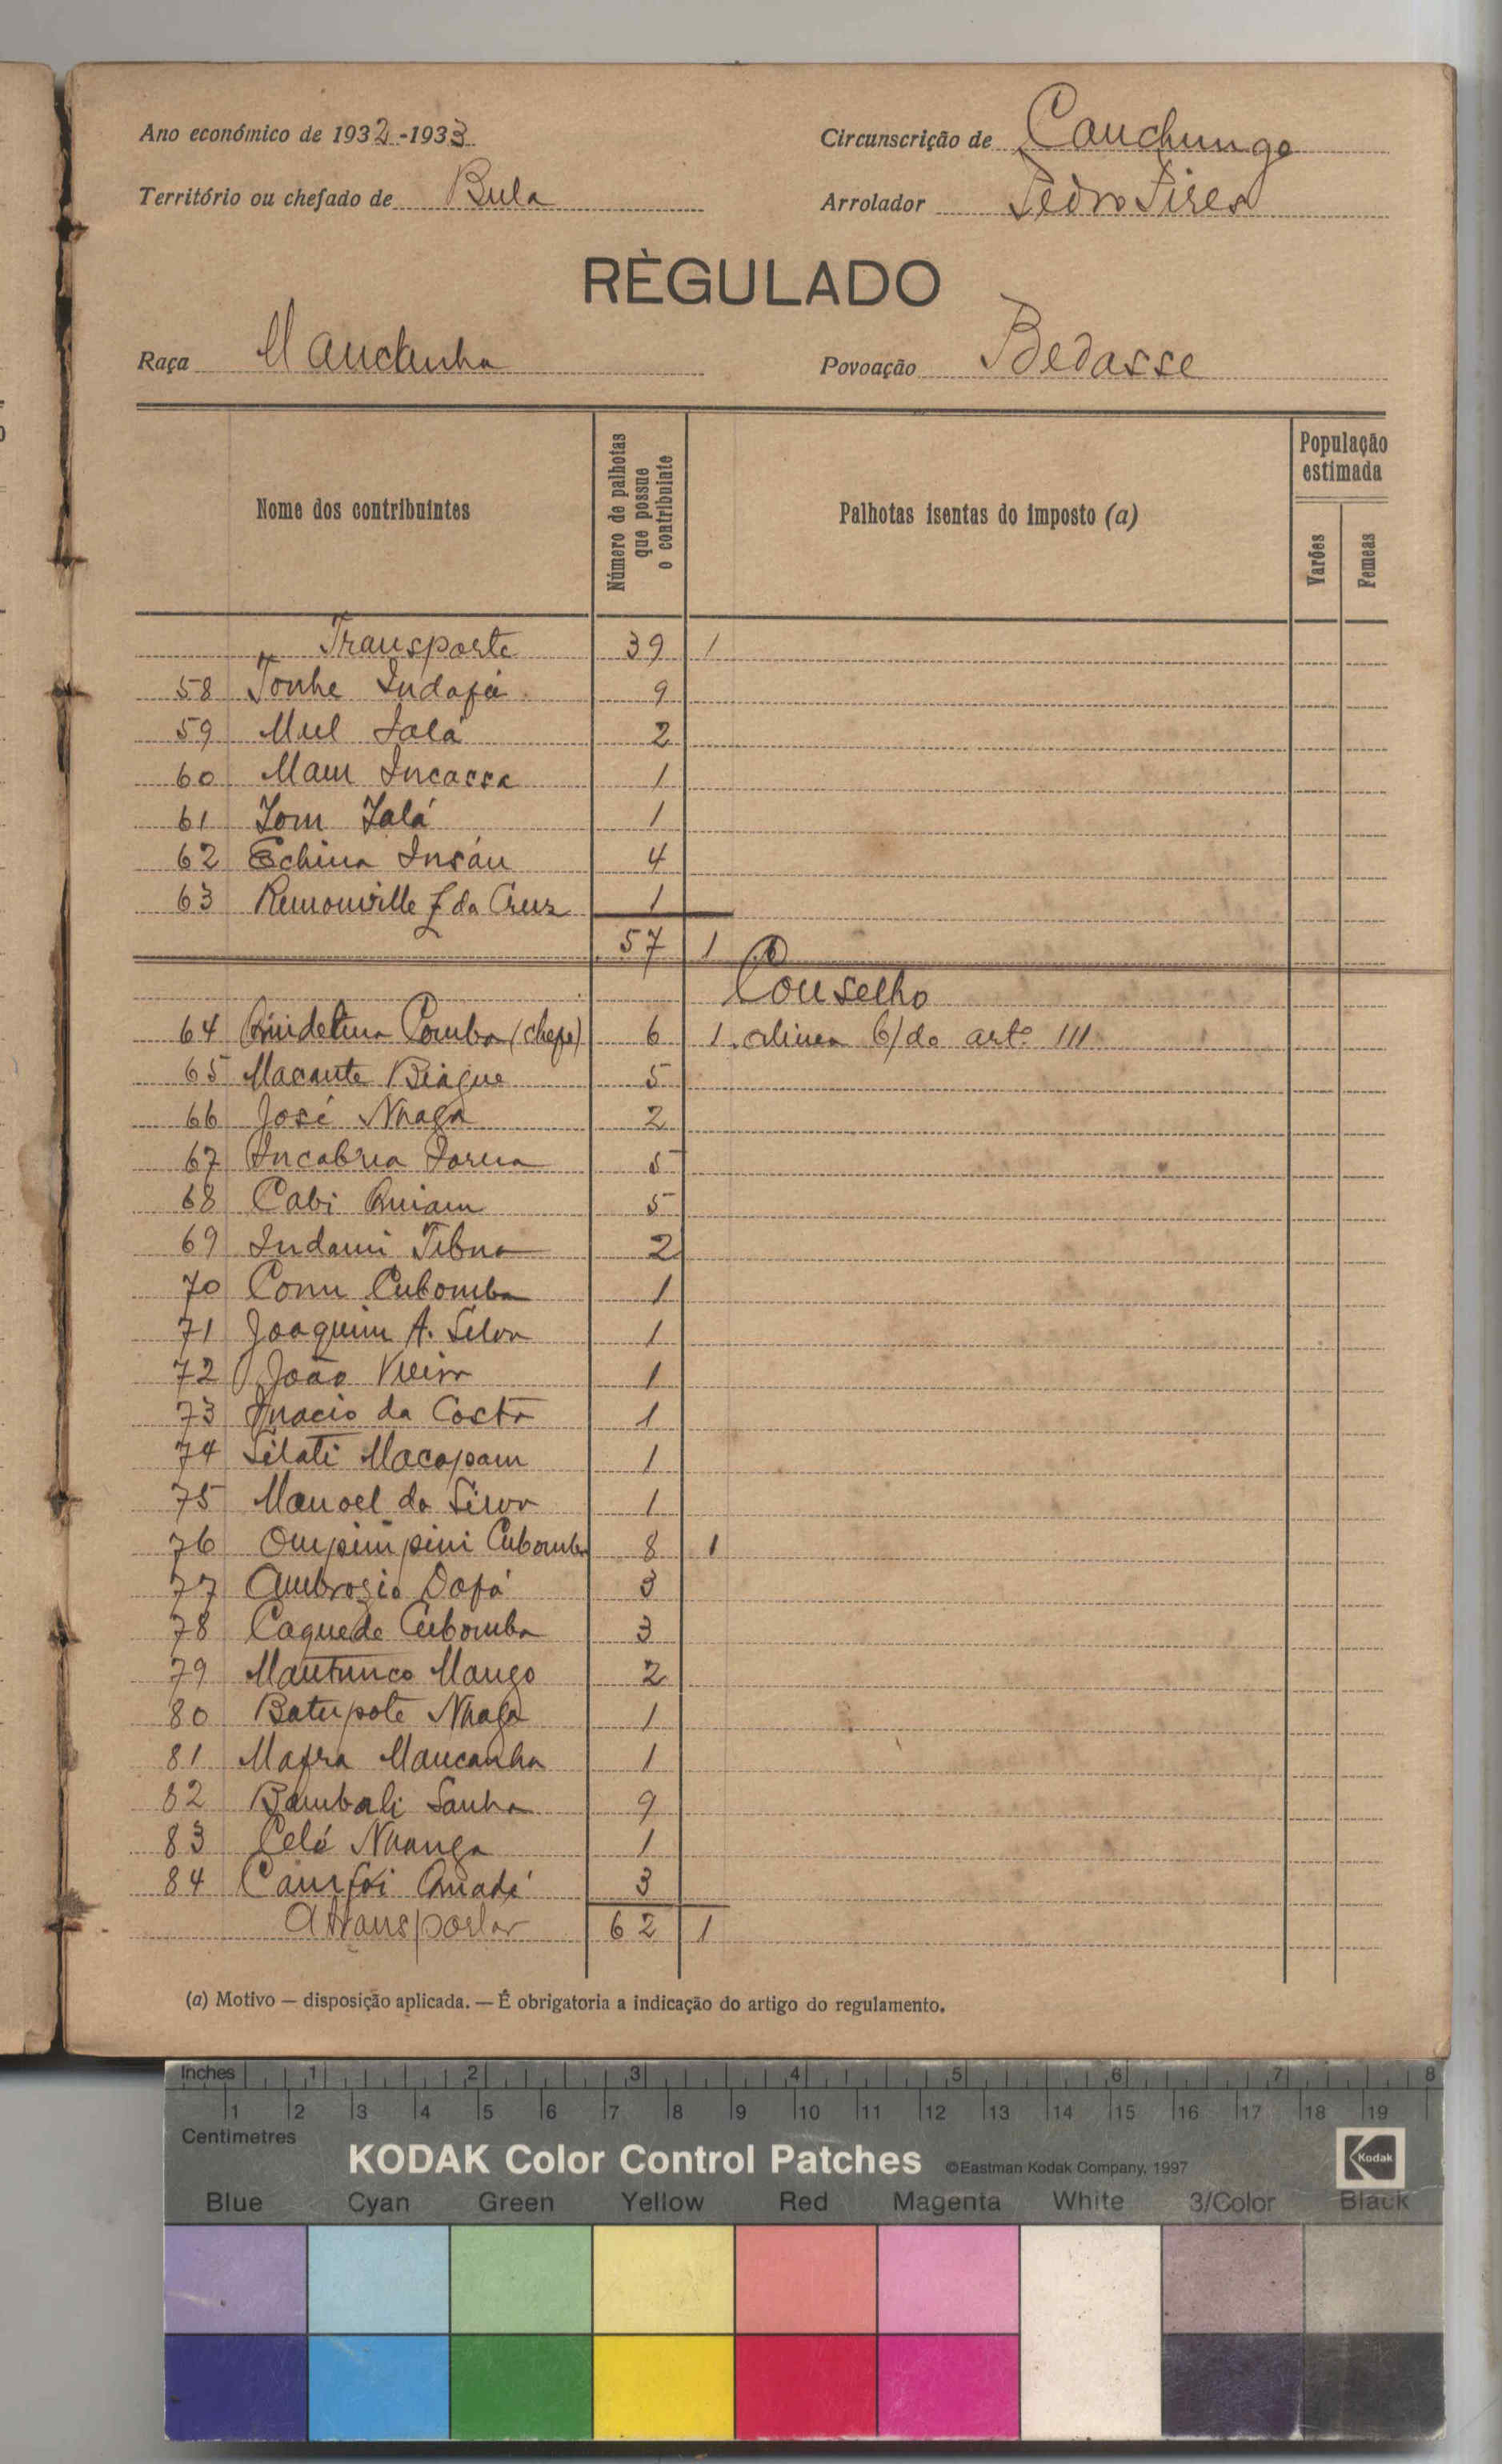 Ano económico de 1932-1933 Circunscrição de Canchungo
Território ou chefado de Bula Arrolador Pedro Pires
RÈGULADO
Raça Mancanha Povoação Bedasse
Nome dos contribuintes Número de palhotas que possue o contribuinte Palhotas isentas do imposto (a) População estimada
Varões Femeas
Transporte 39 1
58 Tonhe Indafá 9
59 Mul Jalá 2
60 Mam Incassa 1
61 Jom Jalá 1
62 Echina Insáu 4
63 da Cruz 1
57 1
Conselho
64 Comba (chefe) 6 1 alinea b) do artº 111
65 Macante Biague 5
66 José Nhaga 2
67 Incabna 5
68 Cabi 5
69 Indami 2
70 Comu Cubomba 1
71 Joaquim A. Silva 1
72 João Vieira 1
73 Inacio da Costa 1
74 Silati Macapam 1
75 Manoel da Silva 1
76 Ompimpini Cubomba 8 1
77 Ambrosio Dafá 3
78 Caquede Cubomba 3
79 Mantunco Mango 2
80 Batupote Nhaga 1
81 Mafra Mancanha 1
82 Bambali Sanha 9
83 Celé Nhanga 1
84 3
A transportar 62 1
(a) Motivo — disposição aplicada. — É obrigatoria a indicação do artigo do regulamento.
Inches 1 2 3 4 5 6 7 8
1 2 3 4 5 6 7 8 9 10 11 12 13 14 15 16 17 18 19
Centimetres
KODAK Color Control Patches ©Eastman Kodak Company, 1997 Kodak
Blue Cyan Green Yellow Red Magenta White 3/Color Black